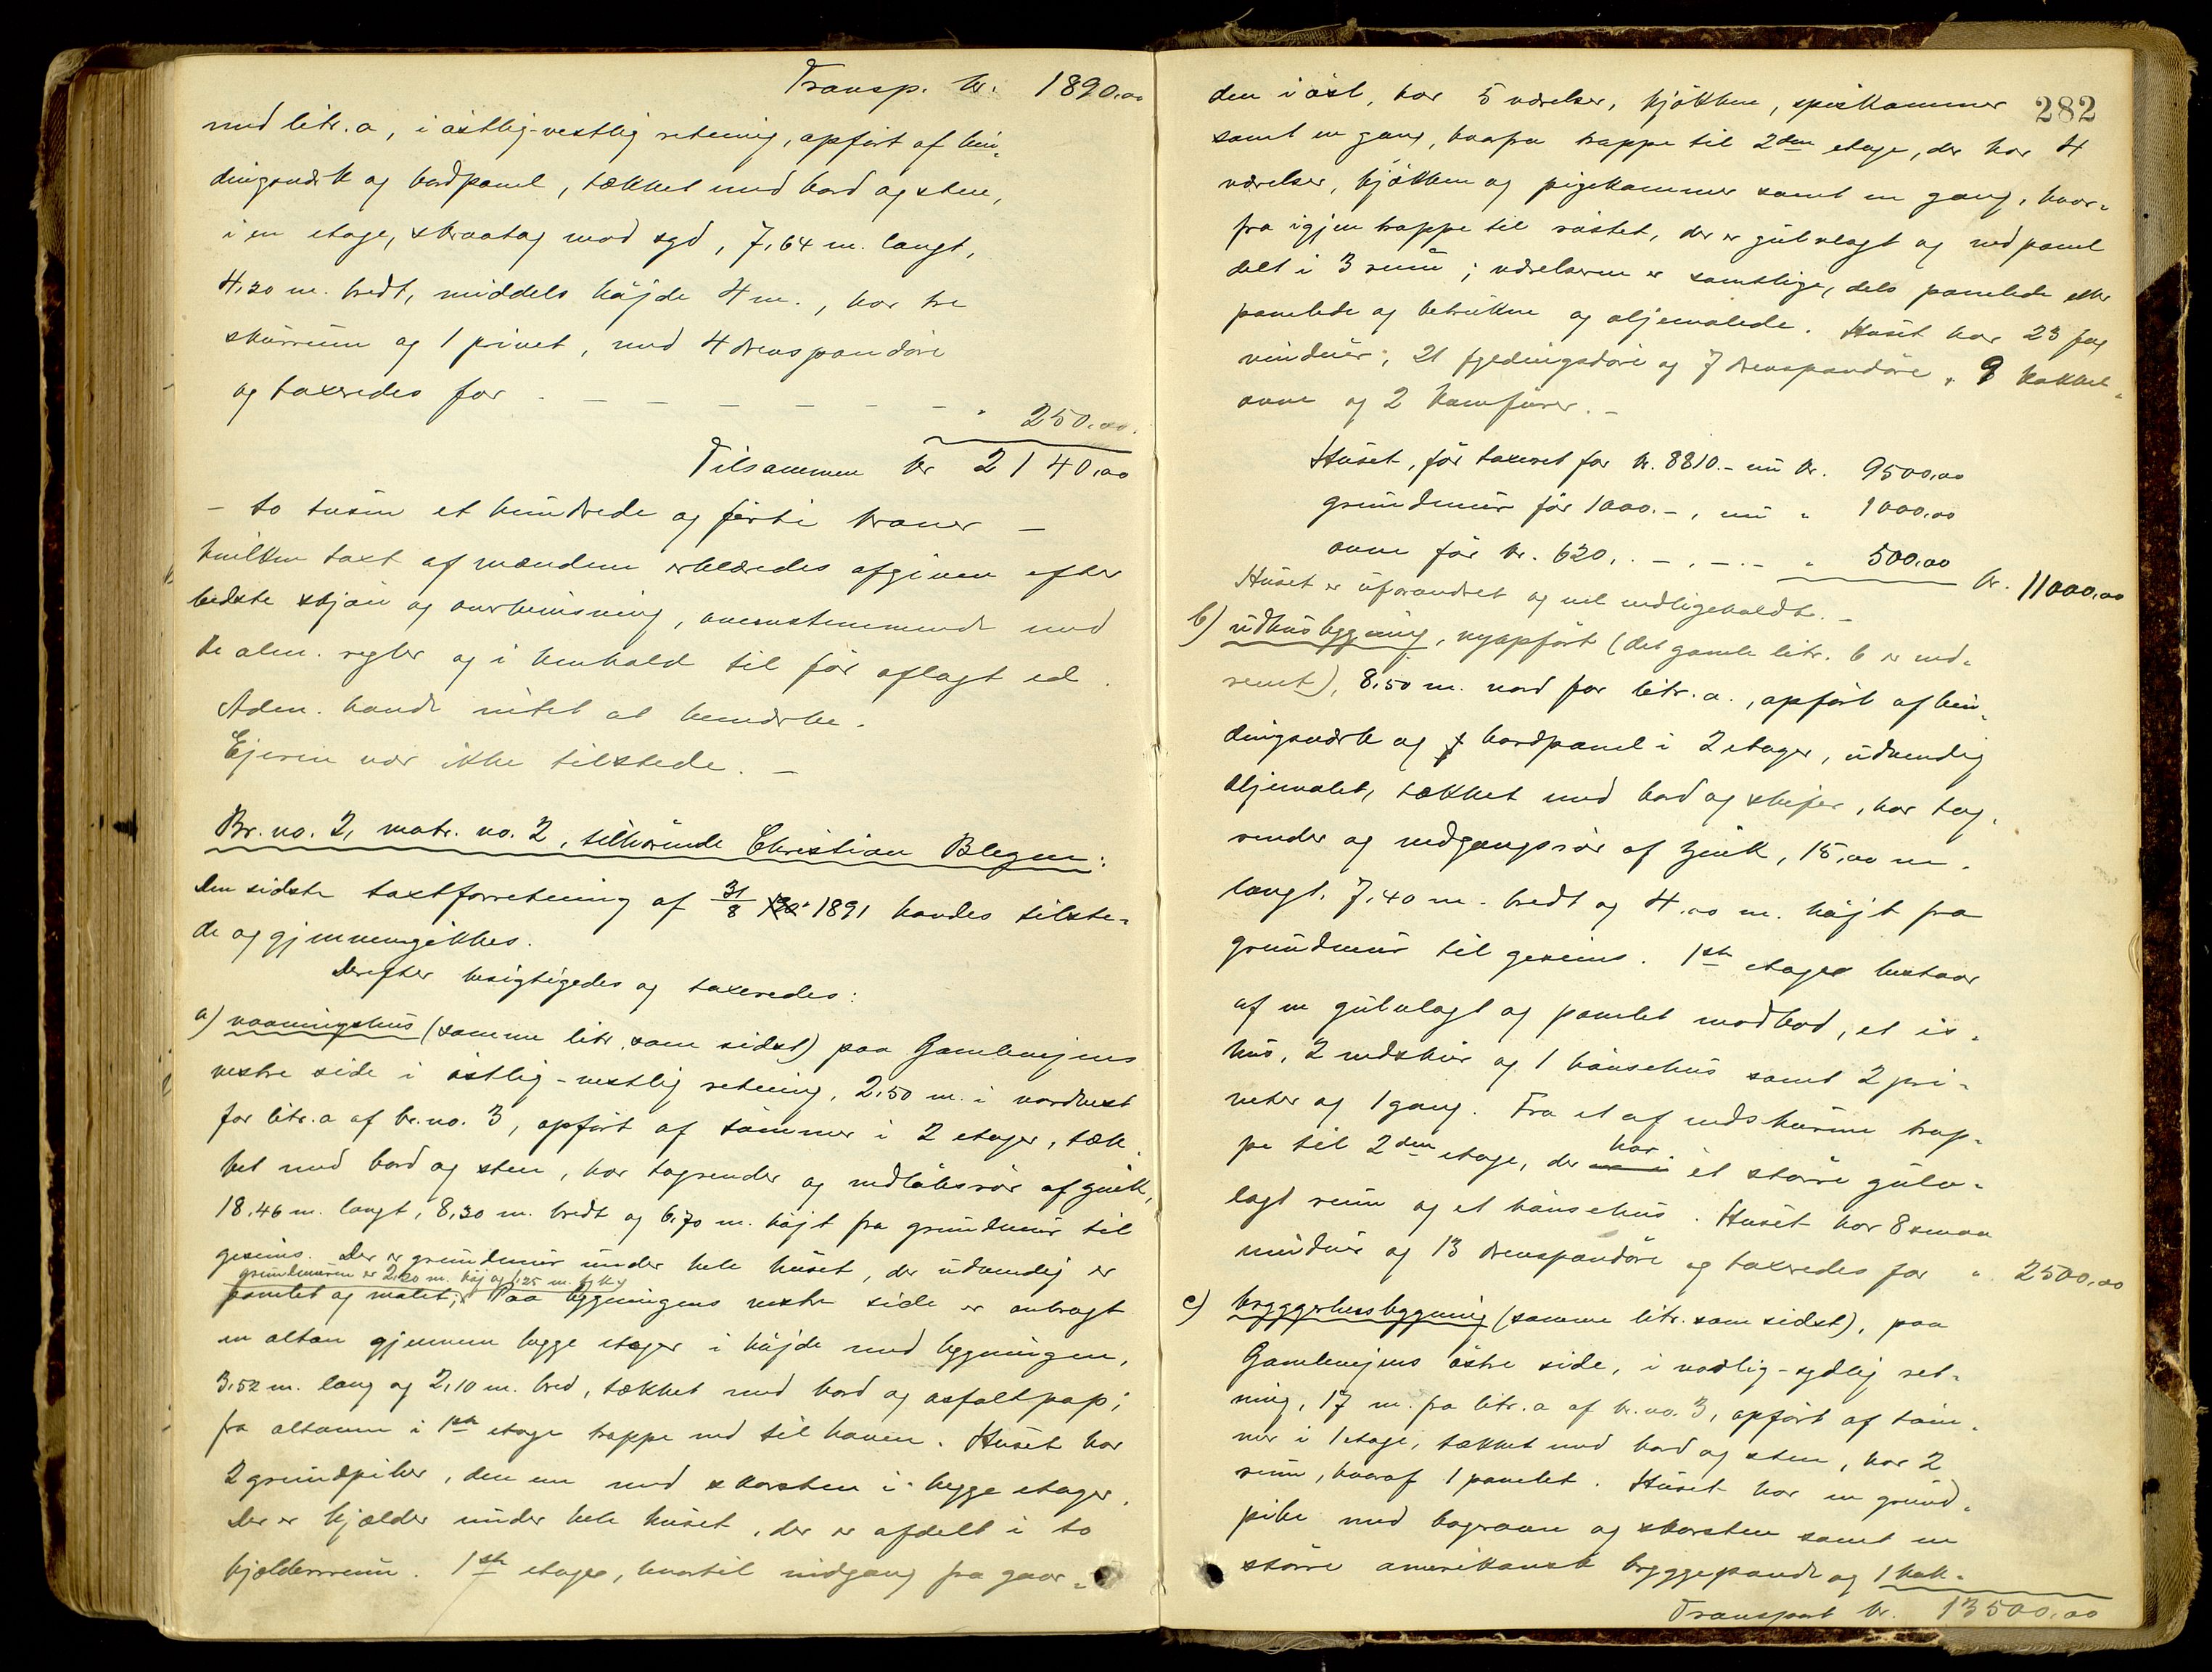 Transp. kr. 1890.00
med litr. a, i östlig-vestlig retning, opfört af bin-
dingsværk og bordpanel, tækket med bord og sten,
i en etage, skraatag mod syd, 7,64 m. langt,
4,20 m. bredt, middels höjde 4 m., har tre
skurrum og 1 privet, med 4 drevspandöre
og taxeredes for . – – – – – – " 250.00.
Tilsammen kr 2140.00
– to tusin et hundrede og förti kroner –
hvilken taxt af mændene erklæredes afgiven efter
bedste skjön og overbevisning, overensstemmende med
de alm. regler og i henhold til för aflagt ed.
Adm. havde intet at bemærke.
Ejeren var ikke tilstede. –
Br. no. 2, matr. no. 2, tilhörende Christian Blegen:
Den sidste taxtforretning af 31/8 1891 havdes tilste-
de og gjennemgikkes.
Derefter besigtigedes og taxeredes:
a) vaaningshus (samme litr. som sidst) paa Gamlevejens
vestre side i östlig-vestlig retning, 2,50 m. i nordvest
for litr. a af br. no. 3, opfört af tömmer i 2 etager, tæk-
ket med bord og sten, har tagrender og nedlöbsrör af zink,
18,46 m. langt, 8,30 m. bredt og 6,70 m. höjt fra grundmur til
gesims. Der er grundmur under hele huset, der udvendig er
grundmuren er 2,20 m. höj og 1,25 m. tyk
panelet og malet; Paa bygningens vestre side er anbragt
en altan gjennem begge etager i höjde med bygningen,
3,52 m. lang og 2,10 m. bred, tækket med bord og asfaltpap;
fra altanen i 1ste etage trappe ned til haven. Huset har
2 grundpiber, den ene med skorsten i begge etager.
Der er kjælder under hele huset, der er afdelt i to
kjælderrum. 1ste etage, hvortil indgang fra gaar-
282
den i öst, har 5 værelser, kjökken, spiskammer
samt en gang, hvorfra trappe til 2den etage, der har 4
værelser, kjökken og pigekammer samt en gang, hvor-
fra igjen trappe til röstet, der er gulvlagt og ved panel
delt i 3 rum; værelserne er samtlige, dels panelede eller
panelede og betrukne og oljemalede. Huset har 23 fag
vinduer, 21 fyldingsdöre og 7 drevspandöre, 9 kakkel-
ovne og 2 komfurer. –
Huset, för taxeret for kr. 8810.– nu kr. 9500.00
grundmur för 1000.–, nu " 1000.00
ovne för kr. 620.. –, –.– " 500.00 kr. 11000.00
Huset er uforandret og vel vedligeholdt. –
b) udhusbygning, nyopfört (det gamle litr. b er ned-
revet), 8,50 m. nord for litr. a., opfört af bin-
dingsværk og bordpanel i 2 etager, udvendig
oljemalet, tækket med bord og skifer, har tag-
render og nedgangsrör af zink, 15,00 m.
langt, 7,40 m. bredt og 4,00 m. höjt fra
grundmur til gesims. 1ste etage bestaar
af en gulvlagt og panelet madbod, et is-
hus, 2 vedskur og 1 hönsehus samt 2 pri-
veter og 1 gang. Fra et af vedskurene trap-
pe til 2den etage, der har et större gulv-
lagt rum og et hönsehus. Huset har 8 smaa
vinduer og 13 drevspandöre og taxeredes for " 2500.00
c) bryggerhusbygning (samme litr. som sidst), paa
Gamlevejens östre side, i nordlig-sydlig ret-
ning, 17 m. fra litr. a af br. no. 3, opfört af töm-
mer i 1 etage, tækket med bord og sten, har 2
rum, hvoraf 1 panelet. Huset har en grund-
pibe med bagerovn og skorsten samt en
större amerikansk bryggepande og 1 kak-
Transport kr. 13500.00